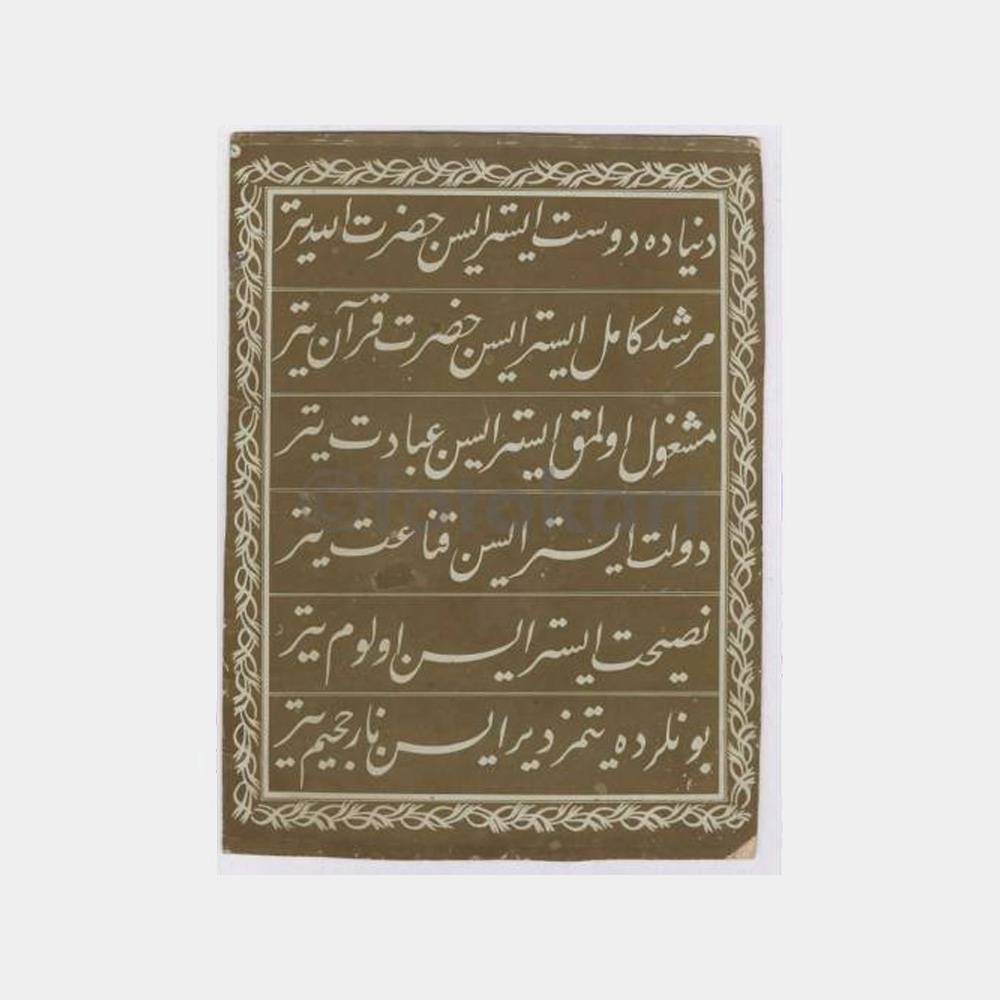 دنیاده دوست ایسترایسن حضرت الله یتر
مرشد كامل ایسترایسن حضرت قرآن یتر
مشغول اولمق ایسترایسن عبادت یتر
دولت ایسترایسن قناعت یتر
نصیحت ایسترایسن اولوم یتر
بونلرده یتمز دیرایسن نار جحیم یتر